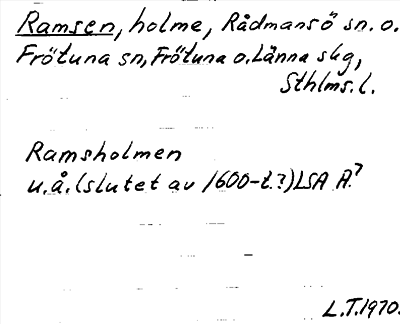 Ramsen, holme, Rådmansö sn. o.
Frötuna sn, Frötuna o. Länna skg,
Sthlms. l.
Ramsholmen
u.å. (slutet av 1600-t.?) LSA A?
L.T. 1970.